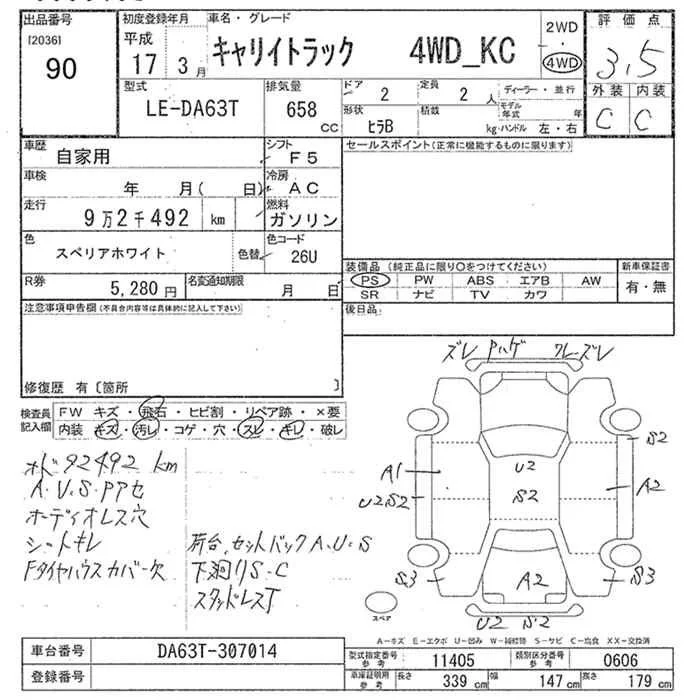 出品番号 初度登録年月 車名・グレード 2WD 評価点
[2036] 平成 キャリイトラック 4WD_KC ・ 3.5
90 17年 3月 4WD 外装 内装
型式 排気量 ドア 定員 ディーラー・並行 C C
LE-DA63T 658 cc 2 2人 モデル年式 年
形状 積載
ヒラB kg ハンドル 左・右
車歴 シフト セールスポイント(正常に機能するものに限ります)
自家用 F5
車検 冷房
年 月( 日) AC
走行 燃料
9万2千492 km ガソリン
色 色コード
スペリアホワイト 色替 26U
装備品(純正品に限り○をつけてください) 新車保証書
R券 名変通知期限 PS PW ABS エアB AW 有・無
5,280円 月 日 SR ナビ TV カワ
注意事項申告欄(不具合内容等は具体的に記入して下さい) 後日品
修復歴 有〔箇所 〕
検査員記入欄 FW キズ・飛石・ヒビ割・リペア跡・×要
内装 キズ・汚レ・コゲ・穴・スレ・キレ・破レ
ズレ Pハゲ ワレ・ズレ
S2
A1 U2 A2
U2 S2 S2
S3 A2 S3
スペア U2 S2
オド92492 km
A.U.S.Pアセ
オーディオレス穴
シートキレ 荷台、セットバックA.U.S
Fタイヤハウスカバー欠 下廻りS.C
スタッドレスT
A-キズ E-エクボ U-凹み W-補修跡 S-サビ C-腐食 XX-交換済
車台番号 DA63T-307014 型式指定番号 参考 11405 類別区分番号 参考 0606
登録番号 車庫証明用 参考 長さ 339cm 幅 147cm 高さ 179cm